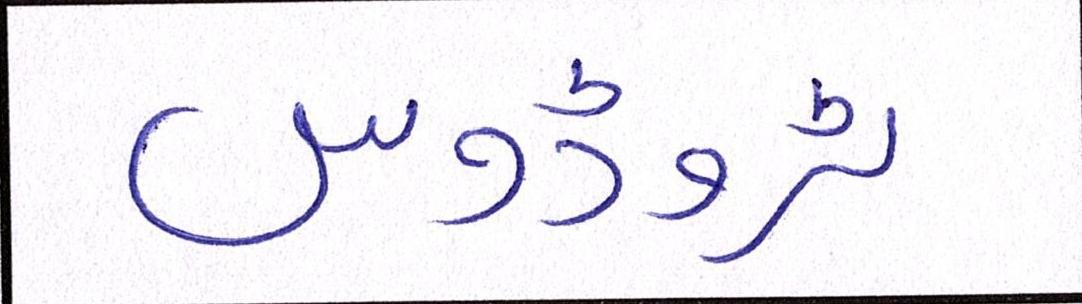 ٹروڈوس